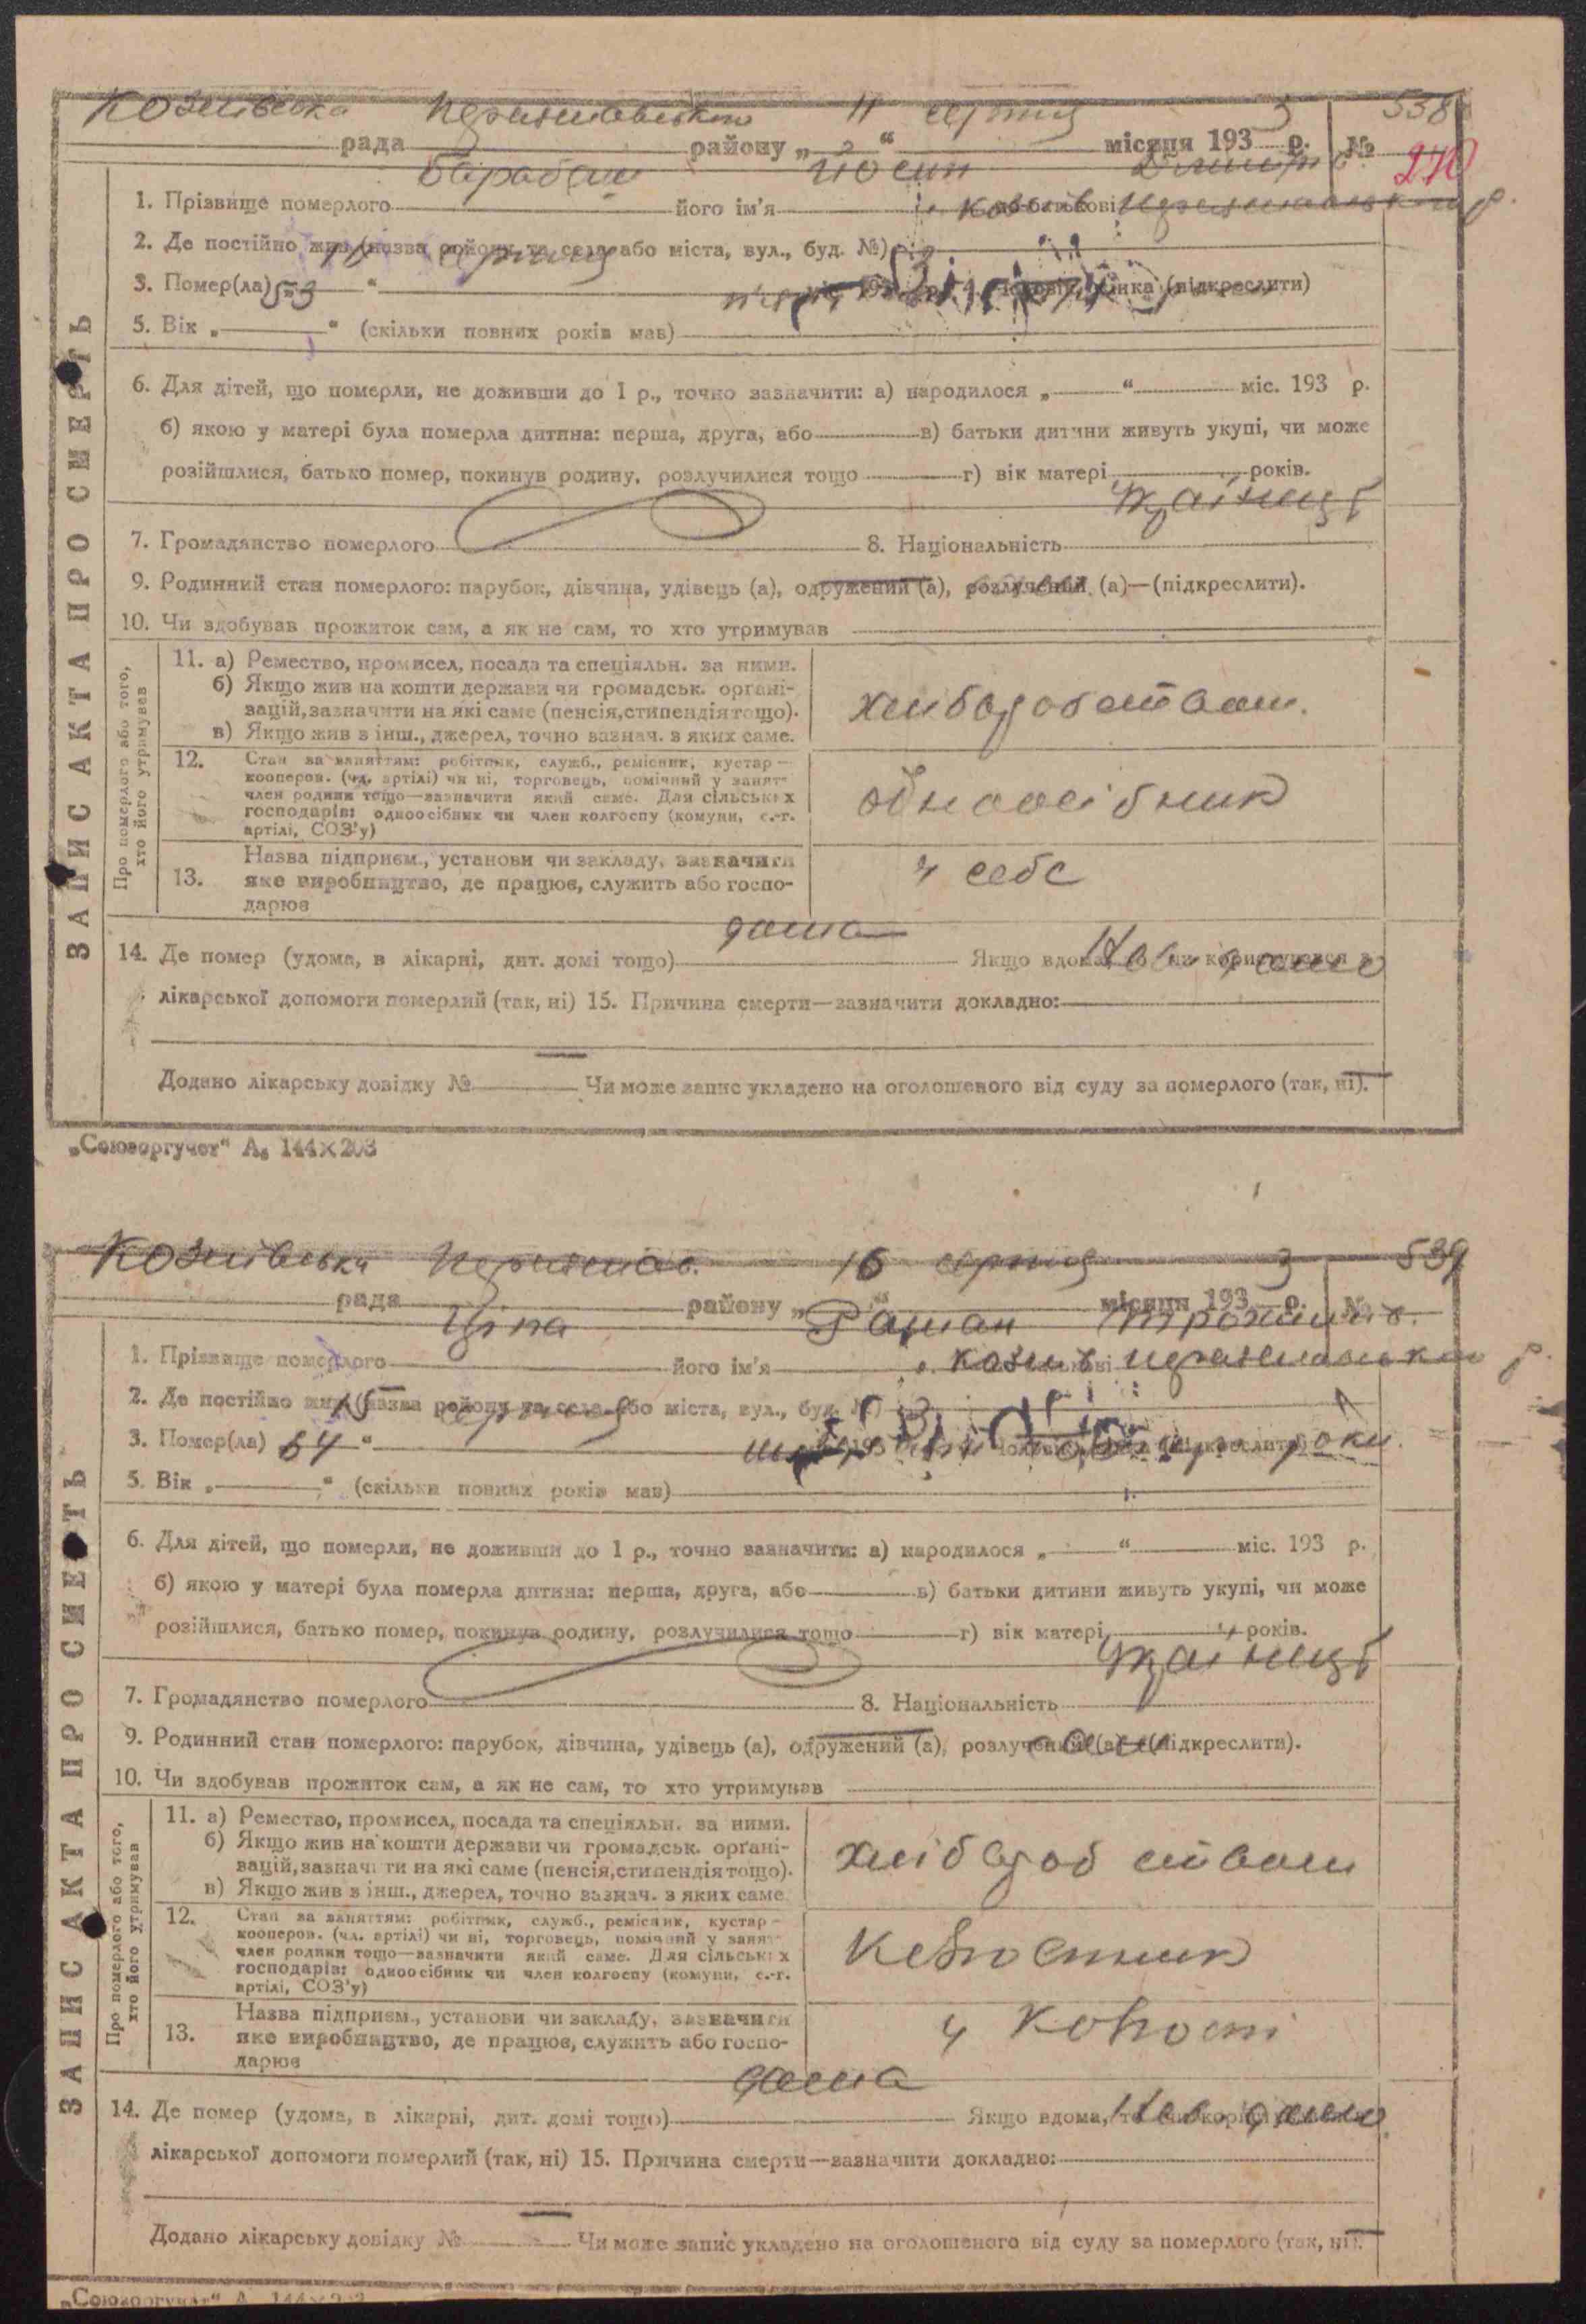 Козлівська Переяславського 11 серпня 3 538
рада району „ “ місяця 193 р. №
Барабаш Йосип 270
1. Прізвище померлого його ім'я по батькові
с. Козлів Переяславського р.
2. Де постійно жив (назва району та села або міста, вул., буд. №)
11 серпня 3
3. Помер(ла) „ “ (підкреслити)
53
5. Вік „ “ (скільки повних років мав)
6. Для дітей, що померли, не доживши до 1 р., точно зазначити: а) народилося „ “ міс. 193 р.
б) якою у матері була померла дитина: перша, друга, або в) батьки дитини живуть укупі, чи може
розійшлися, батько помер, покинув родину, розлучилися тощо г) вік матері років.
українець
7. Громадянство померлого 8. Національність
9. Родинний стан померлого: парубок, дівчина, удівець (а), одружений (а), розлучений (а)—(підкреслити).
10. Чи здобував прожиток сам, а як не сам, то хто утримував
ЗАПИС АКТА ПРО СМЕРТЬ
Про померлого або того,
хто його утримував
11. а) Ремество, промисел, посада та спеціяльн. за ними.
б) Якщо жив на кошти держави чи громадськ. орґані-
зацій, зазначити на які саме (пенсія, стипендія тощо).
в) Якщо жив з інш., джерел, точно зазнач. з яких саме.
хліборобством.
12. Стан за заняттям: робітник, служб., ремісник, кустар—
кооперов. (чл. артілі) чи ні, торговець, помічний у занят-
член родини тощо—зазначити який саме. Для сільських
господарів: одноосібник чи член колгоспу (комуни, с.-г.
артілі, СОЗ'у)
одноосібник
13. Назва підприєм., установи чи закладу, зазначити
яке виробництво, де працює, служить або госпо-
дарює
у себе
дома Невідомо
14. Де помер (удома, в лікарні, дит. домі тощо) Якщо вдома, то чи користувався з
лікарської допомоги померлий (так, ні) 15. Причина смерти—зазначити докладно:
Додано лікарську довідку № Чи може запис укладено на оголошеного від суду за померлого (так, ні).
„Союзоргучет“ А₅ 144×203
Козлівська Переяслав. 16 серпня 3 539
рада району „ “ місяця 193 р. №
Ціпа Роман Трохимов.
1. Прізвище померлого його ім'я
с. Козлів Переяславського р.
2. Де постійно жив (назва району та села або міста, вул., буд. №)
15 серпня 3
3. Помер(ла) “
64 роки
5. Вік „ “ (скільки повних років мав)
6. Для дітей, що померли, не доживши до 1 р., точно зазначити: а) народилося „ “ міс. 193 р.
б) якою у матері була померла дитина: перша, друга, або в) батьки дитини живуть укупі, чи може
розійшлися, батько помер, покинув родину, розлучилися тощо г) вік матері років.
українець
7. Громадянство померлого 8. Національність
9. Родинний стан померлого: парубок, дівчина, удівець (а), одружений (а), розлучений (а)—(підкреслити).
10. Чи здобував прожиток сам, а як не сам, то хто утримував
ЗАПИС АКТА ПРО СМЕРТЬ
Про померлого або того,
хто його утримував
11. а) Ремество, промисел, посада та спеціяльн. за ними.
б) Якщо жив на кошти держави чи громадськ. орґані-
зацій, зазначити на які саме (пенсія, стипендія тощо).
в) Якщо жив з інш., джерел, точно зазнач. з яких саме.
хліборобством
12. Стан за заняттям: робітник, служб., ремісник, кустар—
кооперов. (чл. артілі) чи ні, торговець, помічний у занят-
член родини тощо—зазначити який саме. Для сільських
господарів: одноосібник чи член колгоспу (комуни, с.-г.
артілі, СОЗ'у)
Колгоспник
13. Назва підприєм., установи чи закладу, зазначити
яке виробництво, де працює, служить або госпо-
дарює
у Колгоспі
дома Невідомо
14. Де помер (удома, в лікарні, дит. домі тощо) Якщо вдома, то чи
лікарської допомоги померлий (так, ні) 15. Причина смерти—зазначити докладно:
Додано лікарську довідку № Чи може запис укладено на оголошеного від суду за померлого (так, ні).
„Союзоргучет“ А 144×203